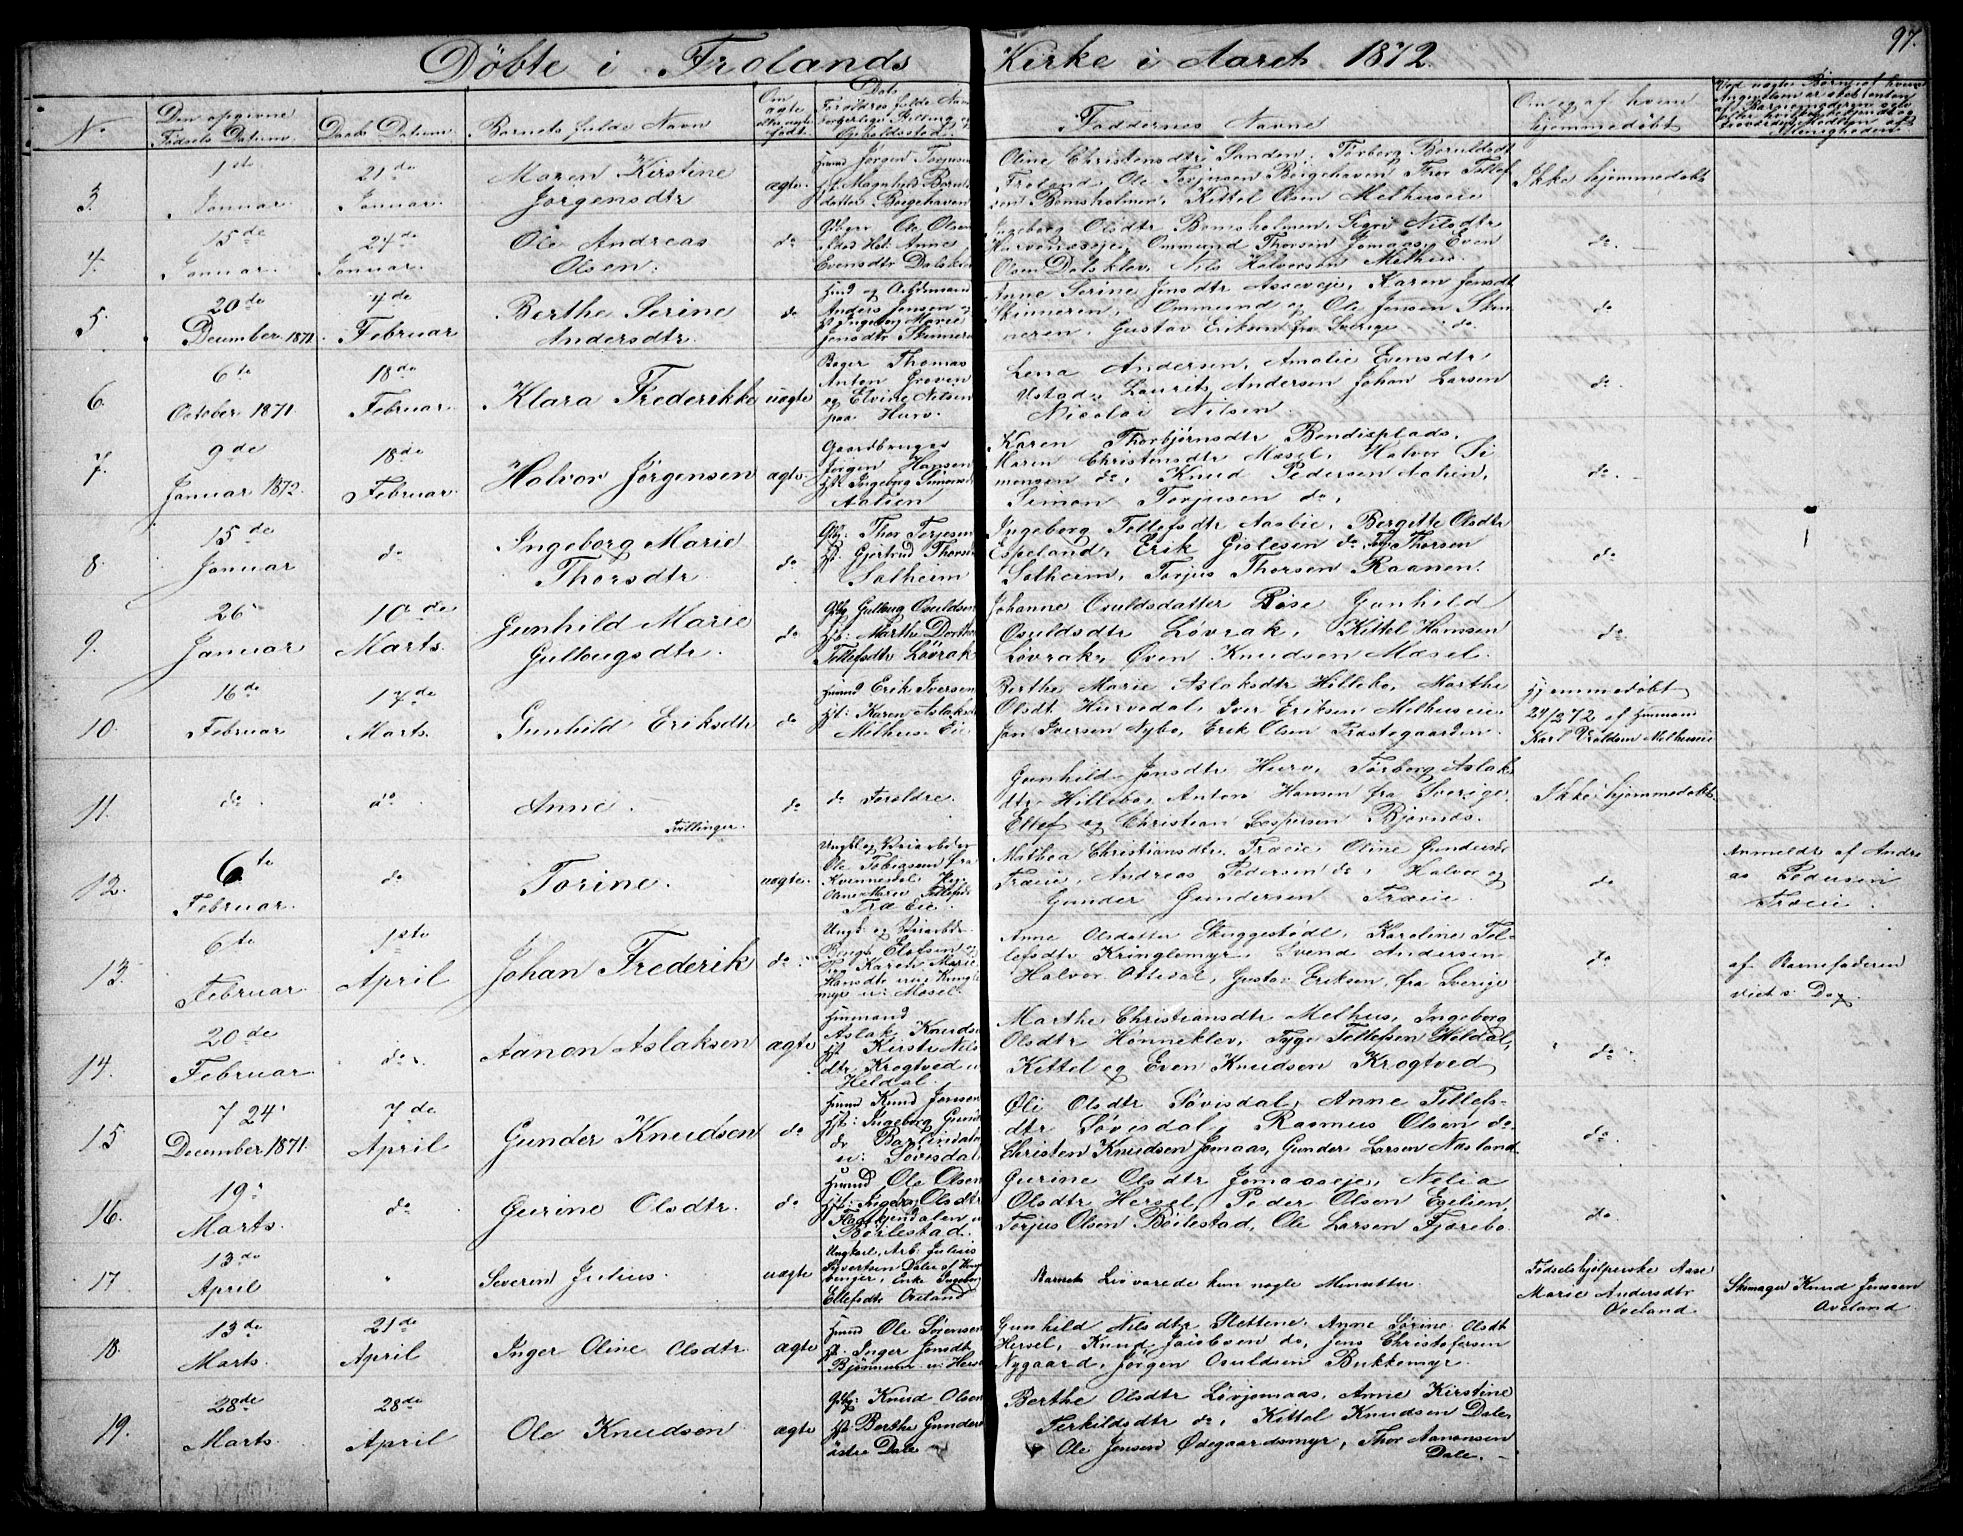 97.
Döbte i Frolands Kirke i Aaret 1872.
No
Den opgivne
Födsels Datum
Daabs Datum
Barnets fulde Navn
Om ægte
födt
Foraldres fulde Navn
Opholdssted
Faddernes Navne
Om og af hvem
hjemmedöbt
Menigheden
3.
1ste
Januar
21de
Januar
Maren Kirstine
Jörgensdtr
ægte
Huusd Jörgen Torjusen
Hst. Magnhild Boruls
datter Borgehaven
Oline Christensdtr Sanden, Torborg Boruldsdt
Froland, Ole Torjusen Borgehaven Thor Tellef
sen Bomsholmen, Kittel Olsen Melhuseie
Ikke hjemmedöbt
4.
15de
Januar
24de
Januar
Ole Andreas
Olsen
do
Ole Olsen
Hst. Anne
Evensdtr Dalsklev
Ingeborg Olsdtr Bomsholmen, Sigri Nilsdtr
Hurvenæseie, Ommund Thorsen Jomaas, Even
Olsen Dalsklev, Nils Halvorsen Melhus
do
5.
20de
December 1871.
4de
Februar
Berthe Serine
Andersdtr.
do
Husd og Arbdmand
Anders Jensen og
H. Ingeborg Marie
Jensdtr Skinneren
Anne Serine Jensdtr Aaseveje, Karen Jensdt
Skinneren, Ommund og Ole Jensen Skin
neren, Gustav Eriksen fra Sverige do
do
6.
6te
October 1871.
18de
Februar
Klara Frederikke
uægte
Bager Thomas
Anton Groven
og Elvine Nilsen
paa Hurv.
Lena Andersen, Amalie Evensdtr
Ustad, Laurits Andersen Johan Larsen
Nicolai Nilsen.
do
7.
9de
Januar 1872.
18de
Februar
Halvor Jörgensen
ægte
Gaardbruger
Jörgen Hansen
Hst. Ingeborg Simonsd
Aalien
Karen Thorbjörnsdtr Bendixplads,
Maren Christensdtr Mösel, Halvor Si
monsen do, Knud Pedersen Aalien,
Simon Torjusen do,
do
8.
15de
Januar
do
Ingeborg Marie
Thorsdtr
do
Gbg: Thor Torjesen
H: Gjertrud Thorsd
Solheim
Ingeborg Tellefsdtr Aasbie, Bergitte Olsdtr
Espeland, Erik Gislesen do, Thorsen
Solheim, Torjus Thorsen Raanen
do
9.
26
Januar
10de
Marts.
Gunhild Marie
Gullaugsdtr.
do
Gbg Gullaug Osuldsen
Hst: Marthe Dorthea
Tellefsdtr Lövrak
Johanne Osuldsdatter Böse Gunhild
Osuldsdtr Lövrak, Kittel Hansen
Lövrak, Öven Knudsen Mösel.
do
10.
16de
Februar
17de
Marts.
Gunhild Eriksdtr
do
Husmd Erik Iversen
Hst: Karen Aslaksd
Melhus Eie
Berthe Marie Aslaksdtr Hillebo, Marthe
Olsdt Hurvedal, Iver Eriksen Melhuseie
Jon Iversen Nybo, Erik Olsen Præstegaarden.
Hjemmedöbt
24/2 72 af Husmand
Karl Vraldsen Melhuseie
11.
do
do
Anne.
Tvillinger.
do
do Forældre.
Gunhild Jonsdtr Hurv, Torborg Aslaks
dtr Hillebo, Anton Hansen fra Sverige,
Ellef og Christian Caspersen Bjørnds.
Ikke hjemmedöbt
12.
6te
Februar.
do
Torine.
uægte.
Ungkl og Veiarbeider
Ole Tobiassen fra
Kvennestel
Oline Marie Tellefsdtr
Træ Eie
Mathea Christiansdtr Træeie Oline Gundersdt
Træeie, Andreas Pedersen do, Halvor og
Gunder Gundersen Træeie
do
Anmeldt af Andre
as Pedersen
Træeie.
13.
6te
Februar.
1ste
April
Johan Frederik
do
Ungk. og Veiarbdr
Bengt Elofsen
Karen Marie
Hansdtr Kringle
myr u: Mösel.
Anne Olsdatter Skuggestödl, Karoline Tel-
lefsdtr Kringlemyr, Svend Andersen
Halvor Otteial, Gustav Eriksen, fra Sverige
do
af Barnefaderen
viet s: Dag.
14.
20de
Februar
do
Aanon Aslaksen
ægte
Husmand
Aslak Knudsen
Hst: Kirsti Nils
dtr Krogtved u
Heldal.
Marthe Christiansdtr Melhus, Ingeborg
Olsdtr Hönneklev, Tyge Tellefsen Heldal,
Kittel og Even Knudsen Krogtved
do
15
24
December 1871.
7de
April
Gunder Knudsen
do
Husmd Knud Jensen
Hst: Ingeborg Gund
dr Barlindal
u: Sövesdal
Oli Olsdtr Sövesdal, Anne Tellefs-
dtr Sövesdal, Rasmus Olsen do
Christen Knudsen Jomaas, Gunder Larsen Næsland
do
16.
19
Marts.
do
Gurine Olsdtr.
do
Husmd Ole Olsen
Hst: Ingeborg Olsdtr
Flagekjendalen u
Börlestad
Gurine Olsdtr Jomaaseje, Nelia
Olsdtr Hersel, Peder Olsen Egelien,
Torjus Olsen Beilestad, Ole Larsen Fjærebo
do
17
13de
April
"
Severin Julius.
uægte
Ungkarl, Arb: Julius
Syvertsen Dalen af Kongs
benger, Enke Ingeborg
Ellefsdtr Oveland
Barnet Livvarede kun nogle Minutter.
Födselshjelperske Aase
Marie Andersdtr
Oveland
Skomager Knud Jensen
Oveland.
18.
13de
Marts.
21de
April
Inger Oline Olsdtr
ægte
Husmd Ole Sörensen
Hst. Inger Jonsdtr
Björnmur u: Hersel
Gunhild Nilsdtr Slettene, Anne Sörine Olsdt
Hersel, Knud Jacobsen do, Jens Christofersen
Nygaard, Jörgen Osuldsen Bukkemyr.
19.
28de
Marts.
28de
April
Ole Knudsen
ægte
Gbg: Knud Olsen
Hst Berthe Gunders
östre Dale
Berthe Olsdtr Lövjomaas, Anne Kirstine
Terkildsdtr do, Kittel Knudsen Dale,
Ole Jensen Ødegaardsmyr, Thor Aanonsen
Dale.